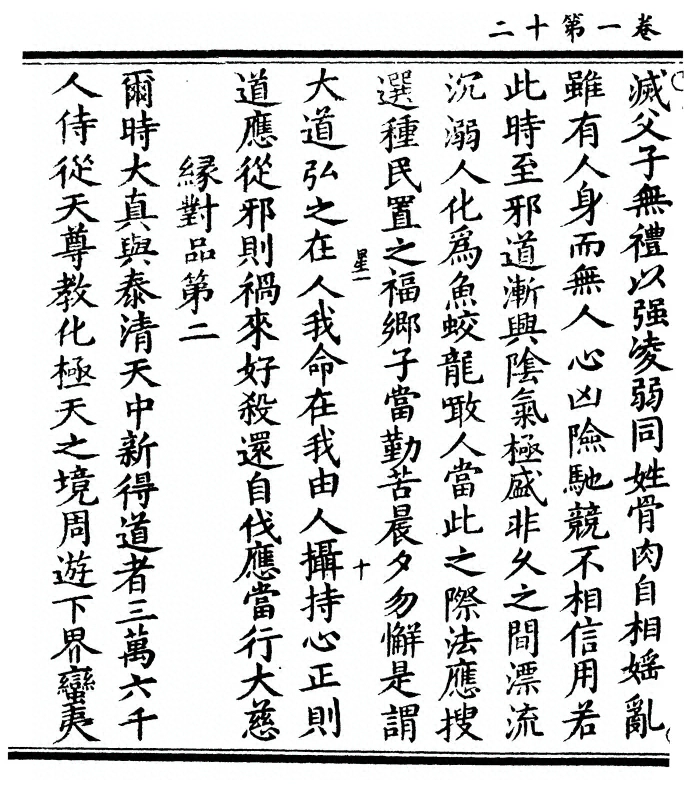 卷一第十二
滅父子無禮以强凌弱同姓骨肉自相婬亂
雖有人身而無人心凶險馳競不相信用若
此時至邪道漸興陰氣極盛非久之間漂流
沉溺人化爲魚蛟龍噉人當此之際法應搜
選種民置之福鄉子當勤苦晨夕勿懈是謂
星一
十
大道弘之在人我命在我由人攝持心正則
道應從邪則禍來好殺還自伐應當行大慈
縁對品第二
爾時大真與泰清天中新得道者三萬六千
人侍從天尊教化極天之境周遊下界蠻夷